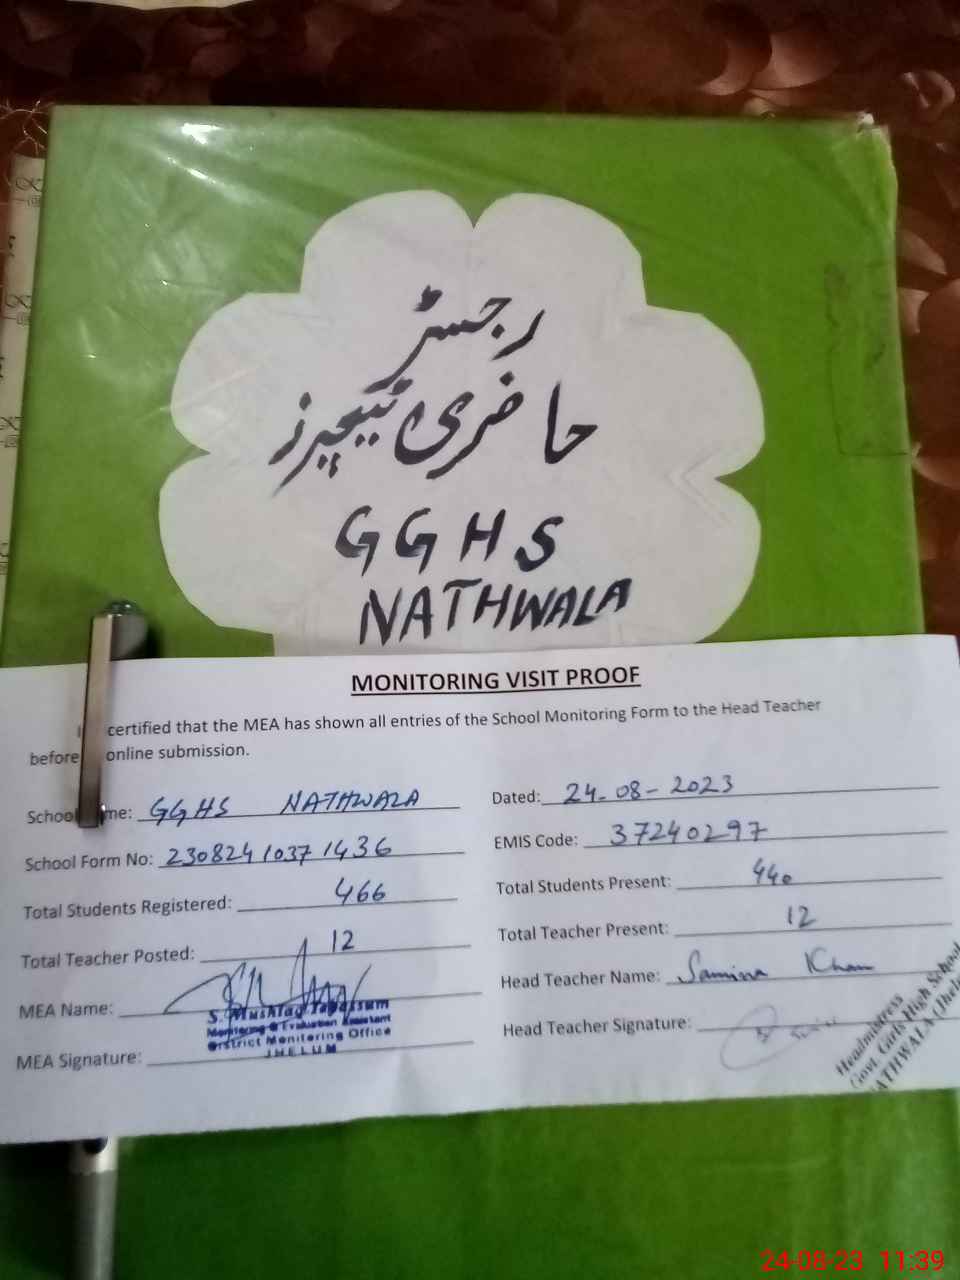 رجسٹر
حاضری ٹیچرز
GGHS
NATHWALA
MONITORING VISIT PROOF
certified that the MEA has shown all entries of the School Monitoring Form to the Head Teacher
before online submission.
School me: GGHS NATHWALA
Dated: 24-08-2023
School Form No: 2308241037 1436
EMIS Code: 37240297
Total Students Registered: 466
Total Students Present: 440
Total Teacher Posted: 12
Total Teacher Present: 12
MEA Name:
Head Teacher Name: Samina Khan
S. Mushtaq Tabassum
Monitoring & Evaluation Assistant
District Monitoring Office
JHELUM
MEA Signature:
Head Teacher Signature:
Headmistress
Govt. Girls High School
NATHWALA (Jhelum
24-08-23 11:39